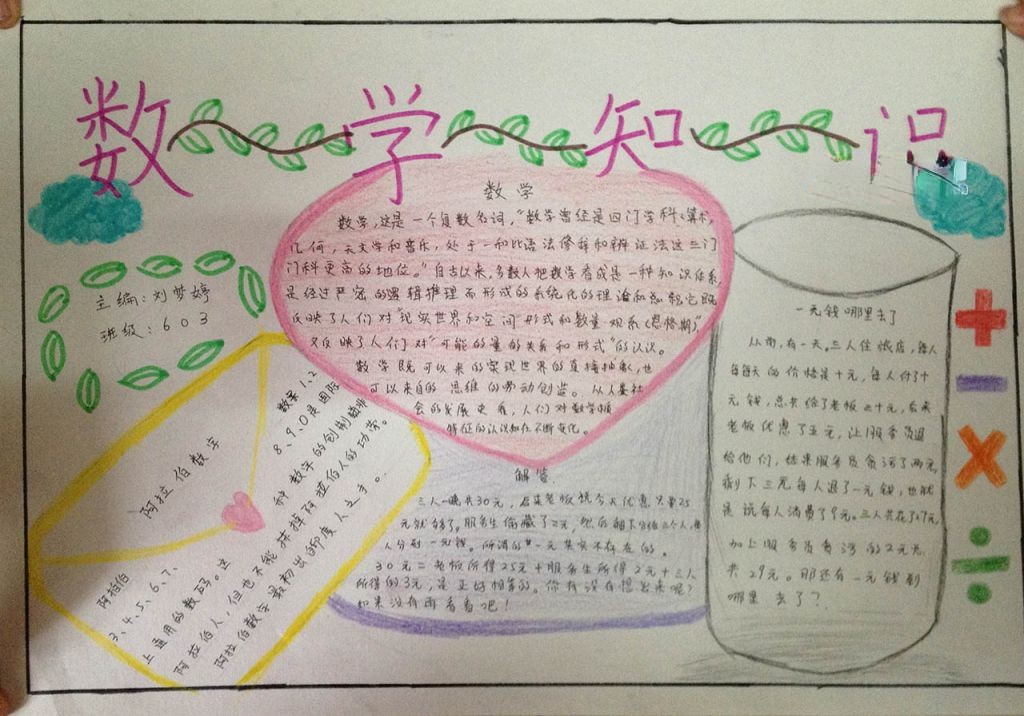 数学知识
主编:刘梦婷
班级:603
数学
数学,这是一个复数名词,"数学曾经是四门学科:算术,
几何,天文学和音乐,处于一和比语法修辞和辨证法这三门
门科更高的地位。"自古以来,多数人把数学看成是一种知识体系,
是经过严密的逻辑推理而形成的系统化的理论和总和,它既
反映了人们对"现实世界和空间形式和数量观系(恩格斯)",
又反映了人们对"可能的量的关系和形式"的认识。
数学既可以来的实现世界的直接抽象,也
可以来自的思维的劳动创造。从人类社
会的发展史看,人们对数学根
特征的认识知在不断变化。
阿拉伯数字
阿拉伯数字1、2、
3、4、5、6、7、8、9、0是国际
上通用的数码。这种数字的创制始非
阿拉伯人,但也不能抹掉阿拉伯人的功劳。
阿拉伯数字最初出的印度人之手。
解答
三人一晚共30元,后来老板说今天优惠只要25
元就够了。服务生偷藏了2元,然后
人分到一元钱。所谓的"一元其实不存在的。
30元=老板所得25元+服务生所得2元+三人
所得的3元,是正好相等的。你有没有想出来呢?
如果没有再看看吧!
一元钱哪里去了
从前,有一天。三人住饭店,每人
每每天的价格是十元,每人付了十
元钱,总共给了老板三十元,后来
老板优惠了五元,让服务员退
给他们,结果服务员贪污了两元,
剩下三元每人退了一元钱,也就
是说每人消费了9元。三人共花了27元
加上服务员贪污的2元总
共29元。那还有一元钱到
哪里去了?